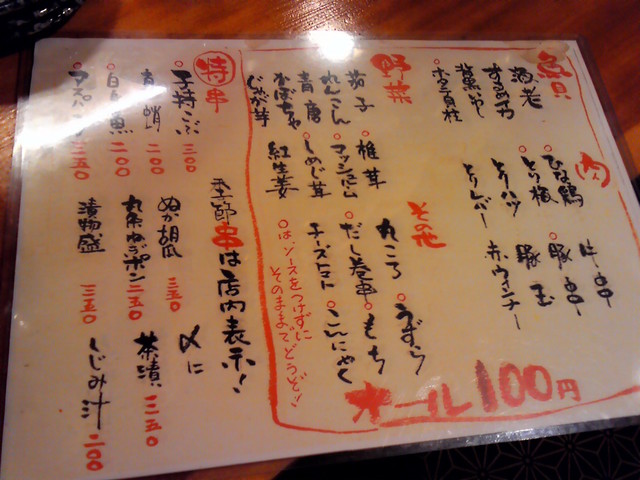 魚貝
海老
するめイカ
紫いか
○ホタテ貝柱
肉
牛串
○ひな鶏
○豚串
○とり椒
豚玉
とりハツ
赤ウィンナー
とりレバー
野菜
茄子
○椎茸
れんこん
○マッシュルーム
青唐
○しめじ茸
かぼちゃ
紅生姜
じゃが芋
その他
丸ころ
○うずら
○だし巻串
○もち
チーズトマト
○こんにゃく
○は、ソースをつけずに
そのままでどうぞ!!
オール100円
特串
○子持こぶ 三〇〇
有頭蛸 二〇〇
○白身魚 二〇〇
○アスパラ 三五〇
季節串は店内表示!
ぬか胡瓜 三五〇
九条ねぎポン 二五〇
漬物盛 三五〇
〆に
茶漬 三五〇
しじみ汁 二〇〇